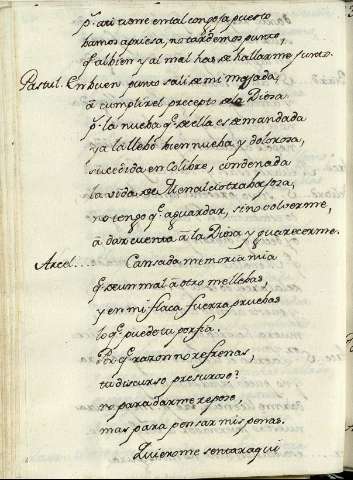 pª. ati tiene en tal congoja puesto
bamos apriesa, no tardemos punto,
q̃ al bien y al mal has de hallarme junto.
Pastul. En buen punto sali de mi majada,
à cumplir el precepto de la Diosa
pª. la nueba q̃ de ella es demandada
ya la llebo bien nueba y dolorosa,
sucedida en Colibre, condenada
la vida de Menalcio
no tengo q̃ aguardar, sino volverme,
à dar cuenta à la Diosa y guarecerme.
Arcel.... Cansada memoria mia
q̃ de un mal à otro me llebas,
y en mi flaca fuerza pruebas
lo q̃ puede tu porfia.
Por q̃ razon no refrenas,
tu discurso presuroso?
no para darme reposo,
mas para pensar mis penas.
Quierome sentar aqui